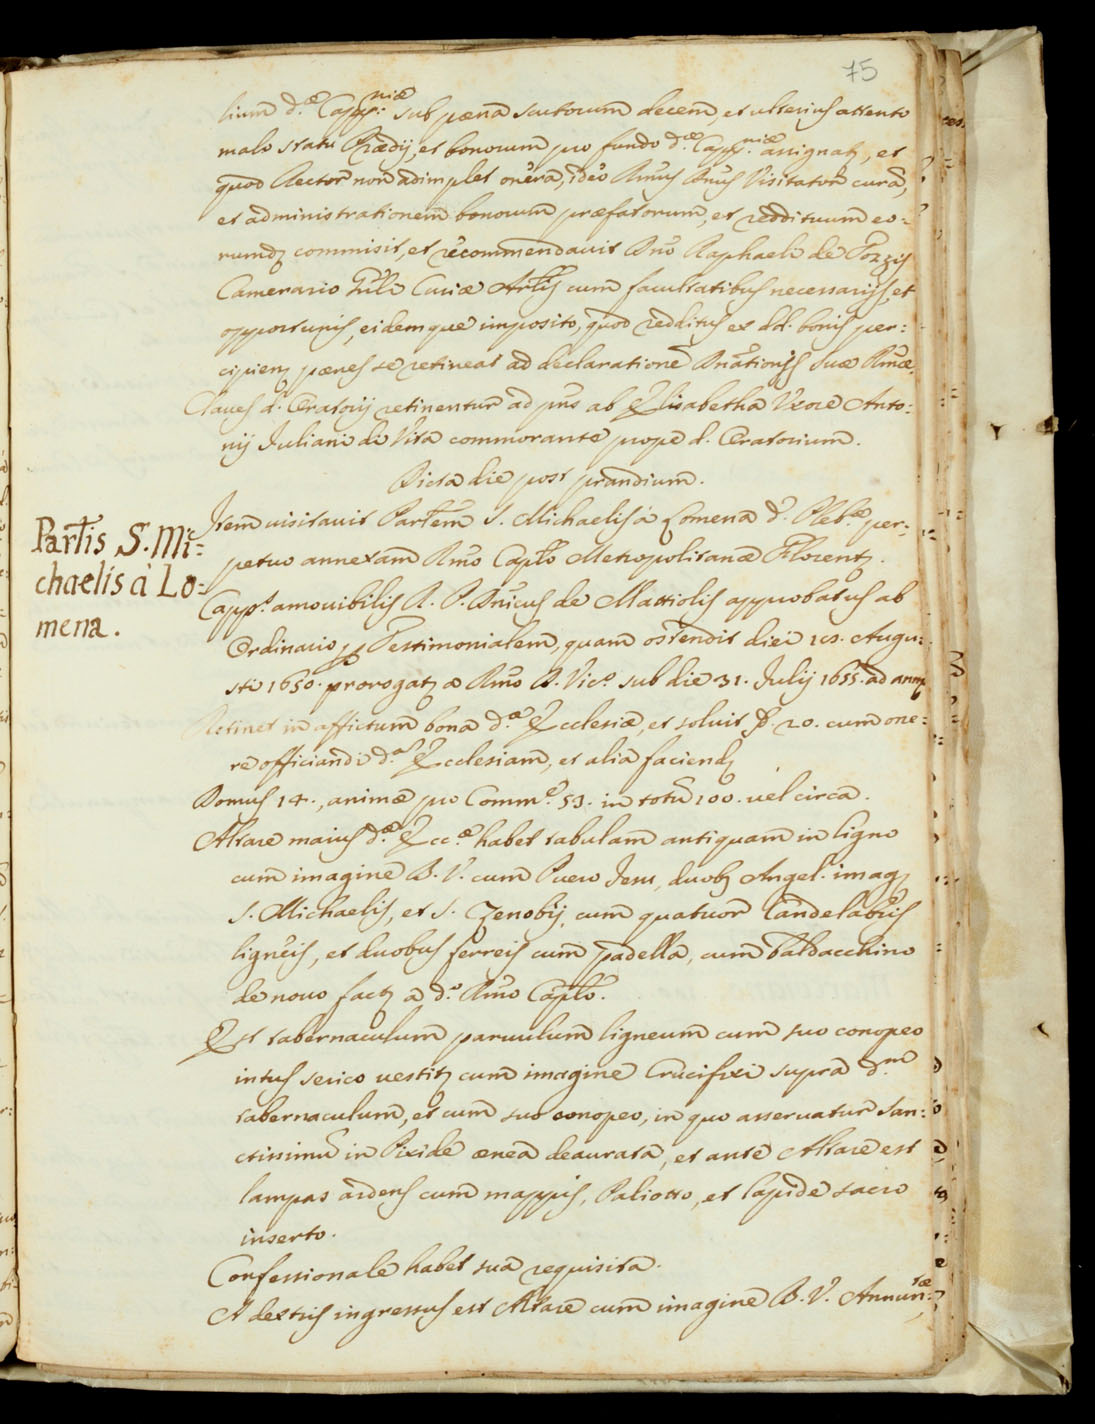 75
lium d.æ Capp:niæ sub pæna scutorum decem, et ulterius attento
malo statu Prædij, et bonorum pro fundo d.æ Capp:niæ assignatȝ, et
quod Rector non adimplet onera, ideo Rmus Dnus Visitator curã,
et administrationem bonorum præfatorum, et reddituum eo=
rumdȝ commisit, et recommendavit Dno Raphaeli de Pozzis
Camerario Curiæ cum facultatibus necessarijs, et
opportunis, eidemque imposito, quod redditus ex dd. bonis per:
cipienȝ pænes se retineat ad declarationē Dnationis Suæ Rmæ.
Claues d. Oratorij retinentur ad pns ab Elisabetha Uxore Anto:
nij Juliani di Vita commorante prope d. Oratorium.
Dicta die post prandium.
Partis S. Mi=
chaelis à Lo=
mena.
Item visitavit Partem S. Michaelis à Lomena d. Plebis per=
petuo annexam Rmo Caplo Metropolitanæ Florentȝ.
Capps amouibilis R. P. Dnicus de Mattiolis approbatus ab
Ordinario Testimonialem, quam ostendit diei Augu:
sti 1650. prorogatȝ a Rmo D. Vico sub die 31. Julij 1655. ad
Retinet in affictum bona d.æ Ecclesiæ, et soluit 20. cum one:
re officiandi d.am Ecclesiam, et alia faciendȝ
Domus 14., animæ pro Comme 53. in totũ 100. uel circa.
Altare maius d.æ Ecc.æ habet tabulam antiquam in ligno
cum imagine B. V. cum Puero Jesu, duobȝ Angel. imagȝ
S. Michaelis, et S. Zenobij, cum quatuor Candelabris
ligneis, et duobus ferreis cum padella, cum Baldacchino
de nouo factȝ a d.o Rmo Caplo.
Est tabernaculum paruulum ligneum cum suo conopeo
intus serico vestitȝ cum imagine Crucifixi supra d.m
tabernaculum, et cum suo conopeo, in quo asseruatur San:
ctissimũ in Pixide ænea deaurata, et ante Altare est
lampas ardens cum mappis, Paliotto, et lapide sacro
inserto.
Confessionale habet sua requisita.
A dextris ingressus est Altare cum imagine B. V. Annun:tæ